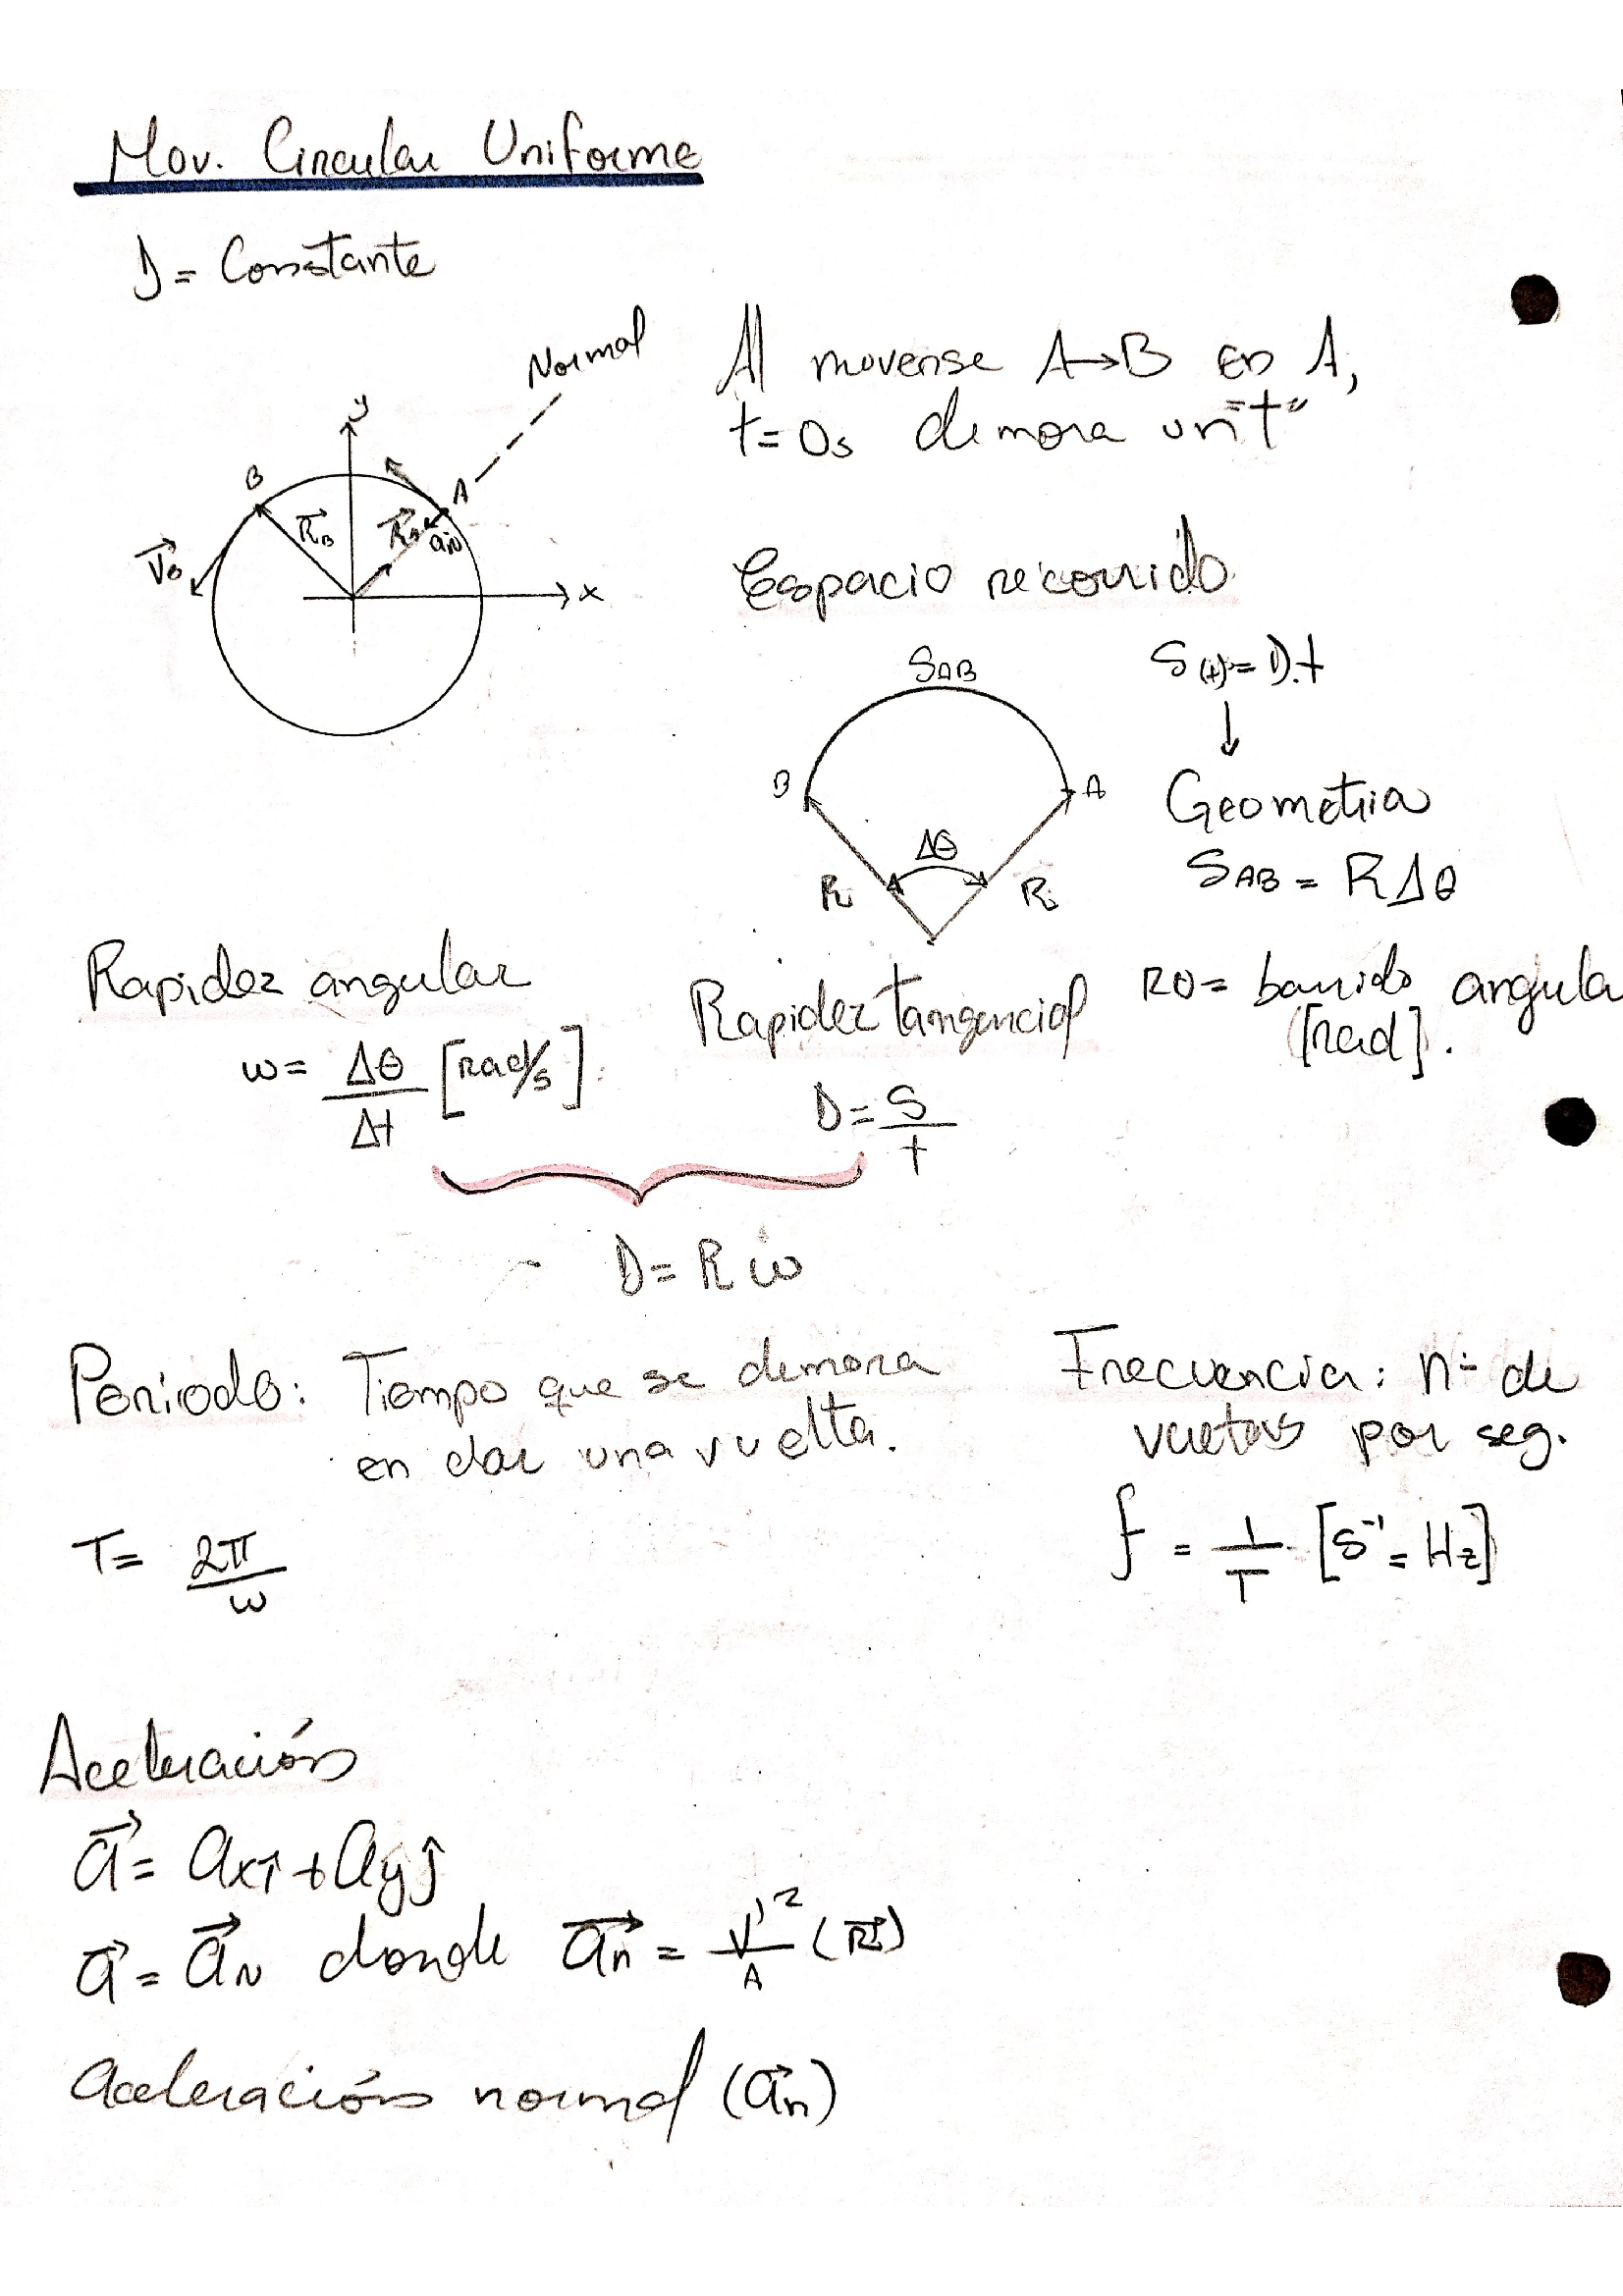 Mov. Circular Uniforme
D = Constante
Normal
y
B
A
R⃗B
R⃗A
a⃗N
V⃗B
x
Al moverse A→B en A,
t=0s demora un "t"
Espacio recorrido
SAB
S(t) = D.t
↓
B
A
Geometria
Δθ
SAB = RΔθ
R
R
Rapidez angular
Rapidez tangencial
= barrido angula
[rad].
w = Δθ/Δt [rad/s]
D = S/t
D = R w
Periodo: Tiempo que se demora
en dar una vuelta.
Frecuencia: n° de
vueltas por seg.
T = 2π/w
f = 1/T [s⁻¹ = Hz]
Aceleración
a⃗ = axî + ayĵ
a⃗ = a⃗N donde a⃗n =
Aceleración normal (a⃗n)